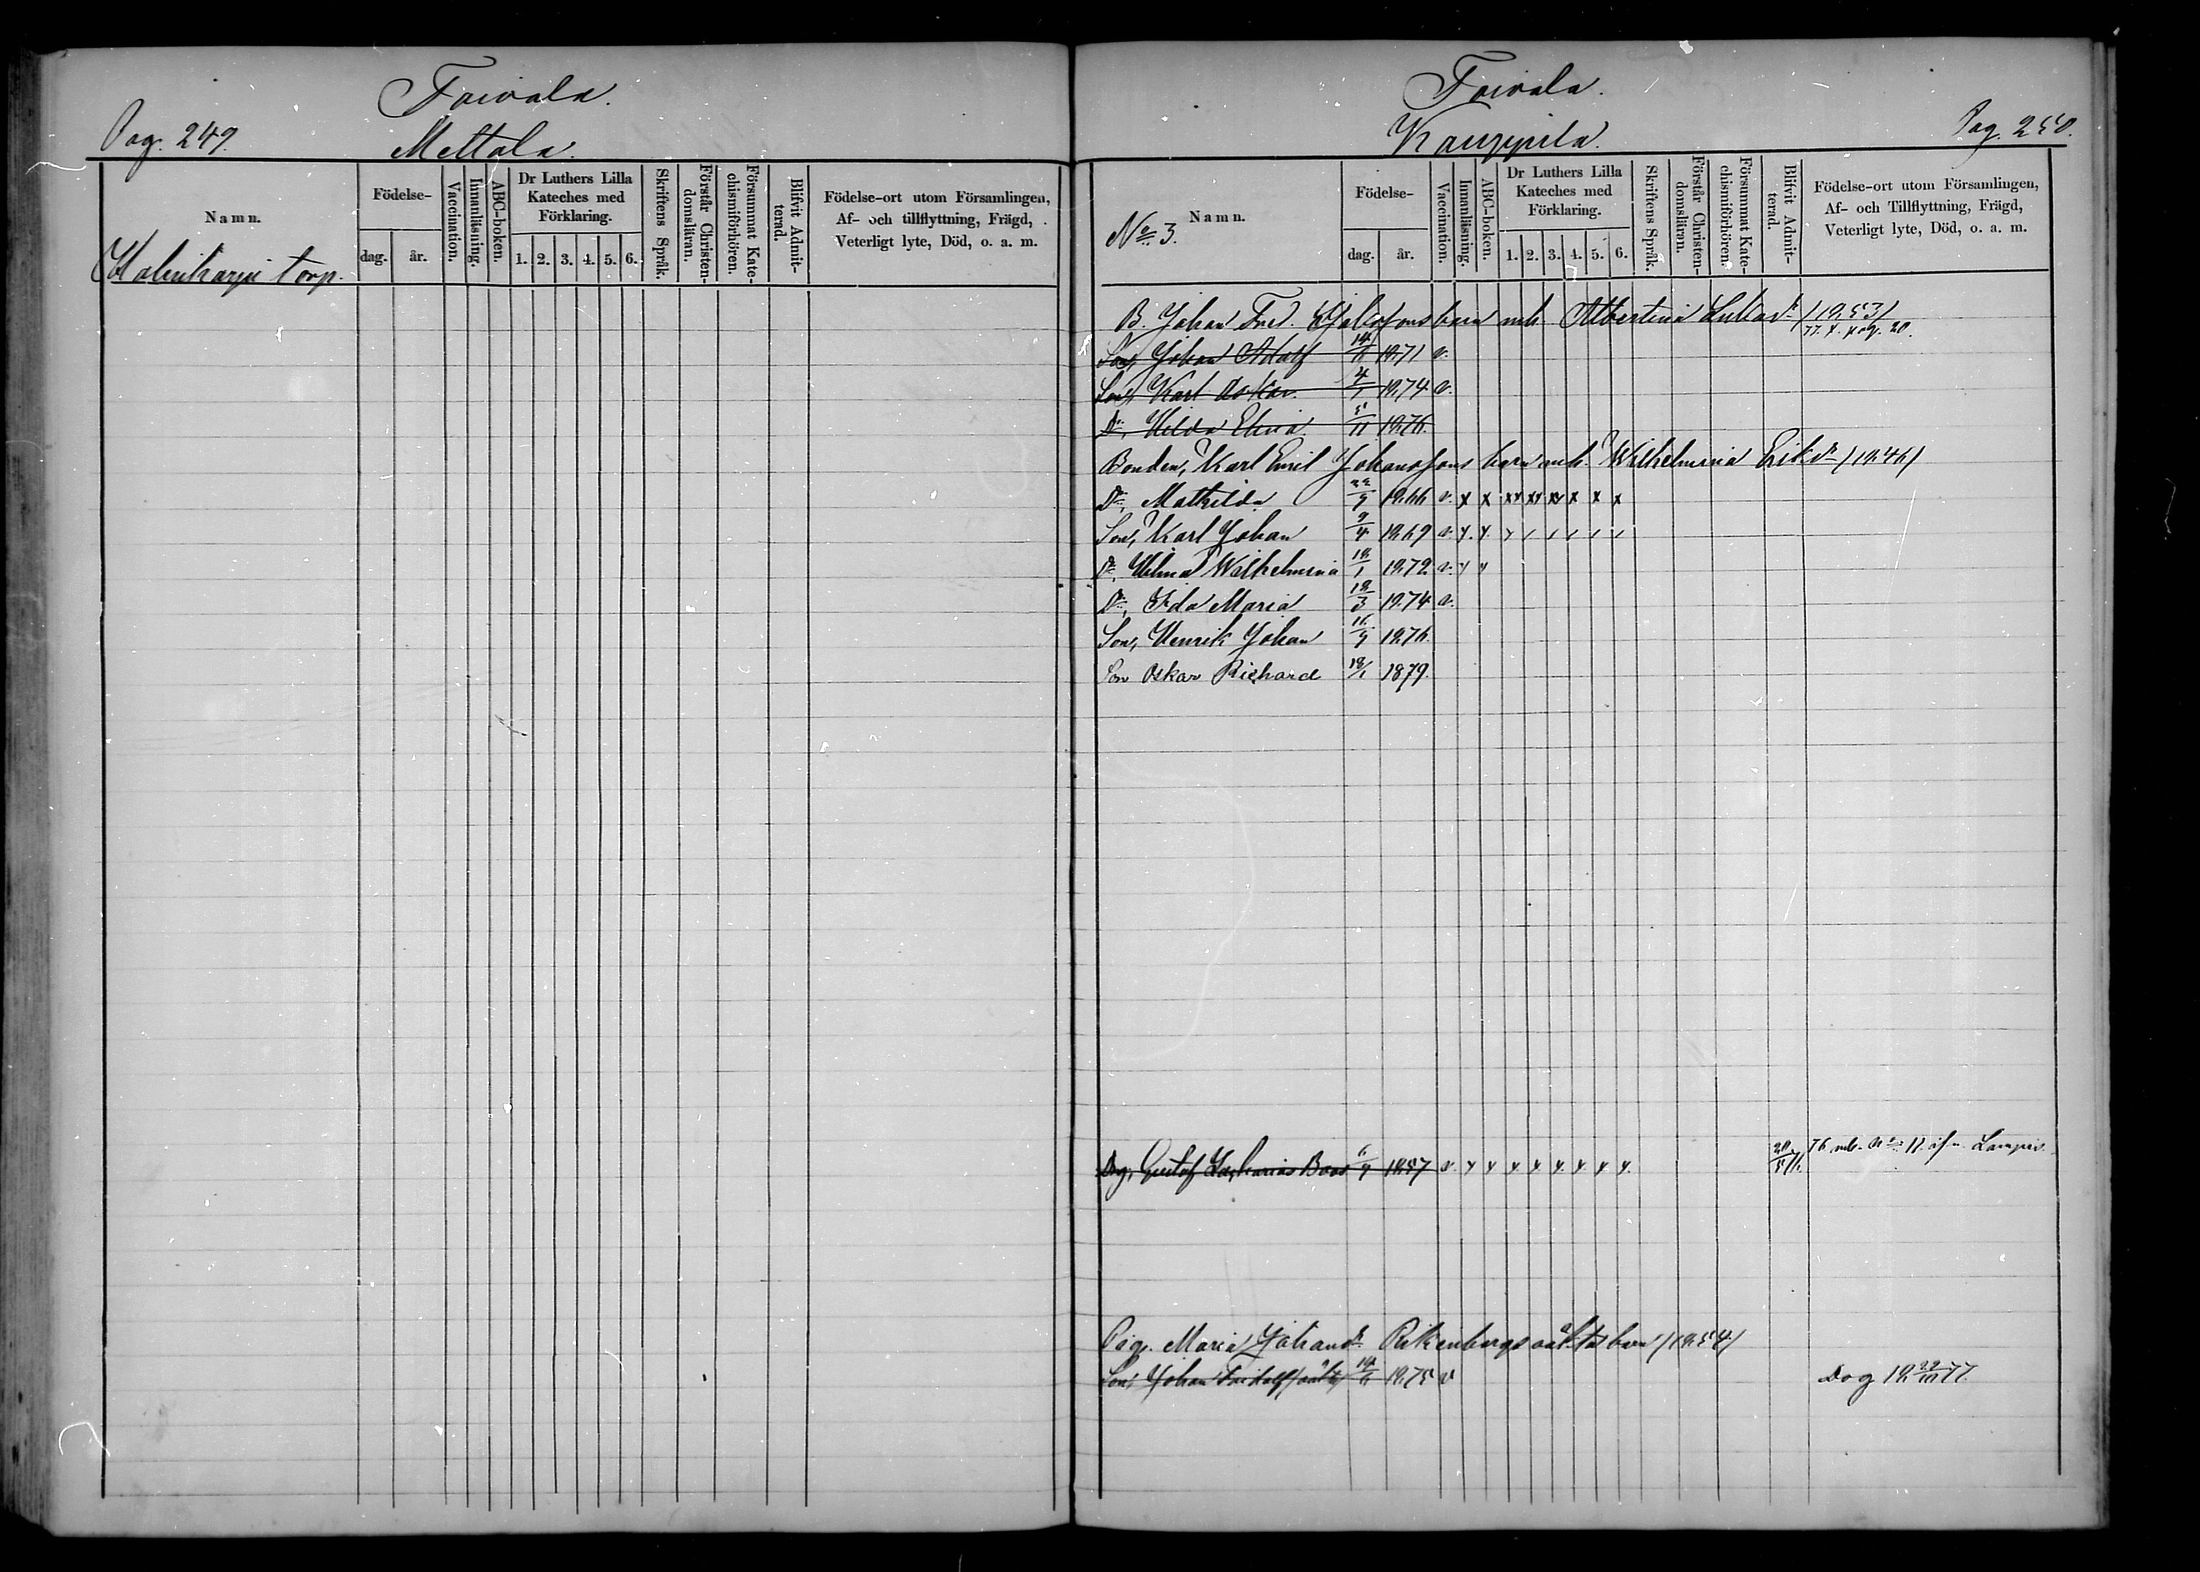 Pag. 249.
Toivala.
Mettala.
Namn.
Födelse-
dag.
år.
Vaccination.
Innanläsning.
ABC-boken.
Dr Luthers Lilla
Kateches med
Förklaring.
1. 2. 3. 4. 5. 6.
Skriftens Språk.
Förstår Christen-
domsläran.
Försummat Kate-
chismiförhören.
Blifvit Admit-
terad.
Födelse-ort utom Församlingen,
Af- och tillflyttning, Frägd,
Veterligt lyte, Död, o. a. m.
torp.
Toivala.
Kauppila.
Pag. 250.
No 3.
Namn.
Födelse-
dag.
år.
Vaccination.
Innanläsning.
ABC-boken.
Dr Luthers Lilla
Kateches med
Förklaring.
1. 2. 3. 4. 5. 6.
Skriftens Språk.
Förstår Christen-
domsläran.
Försummat Kate-
chismiförhören.
Blifvit Admit-
terad.
Födelse-ort utom Församlingen,
Af- och Tillflyttning, Frägd,
Veterligt lyte, Död, o. a. m.
B. Johan Fred. barn mh. Albertina /1853/
77. f. pag. 20.
Son, Johan Adolf 1871 v.
Son, Karl Oskar 4/1 1874 v.
Dr, Hilda Elina 5/11 1876.
Bonden, Karl Emil Johanssons barn mh. Wilhelmina Eriksdr /1846/
Dr, Mathilda 22/9 1866 v. x x xx xx xx x x x
Son, Karl Johan 9/4 1869 v. x. x.
Dr, Hilma Wilhelmina 18/1 1872 v.
Dr, Ida Maria 18/3 1874 v.
Son, Henrik Johan 16/9 1876.
Son Oskar Richard 18/1 1879.
Drg, Gustaf Zacharias Boos 6/9 1857 v. x x x x x x x x 20/5 76. 76 mb. No 11 af
Pig. Maria Johansdr oäkta barn /1854/
Son, Johan Fridolf (oäkta) 1875 v Dog 18 22/10 77.